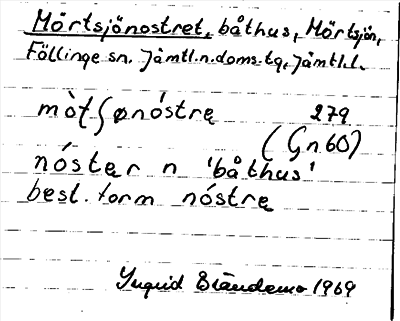 Mörtsjönostret, båthus, Mörtsjön,
Föllinge sn. Jämtl.n.doms.tg, Jämtl.l.
mòʈʃønóstrę 279
(Gn 60)
nóstęr n 'båthus'
best. form nóstrę
Ingrid 1969